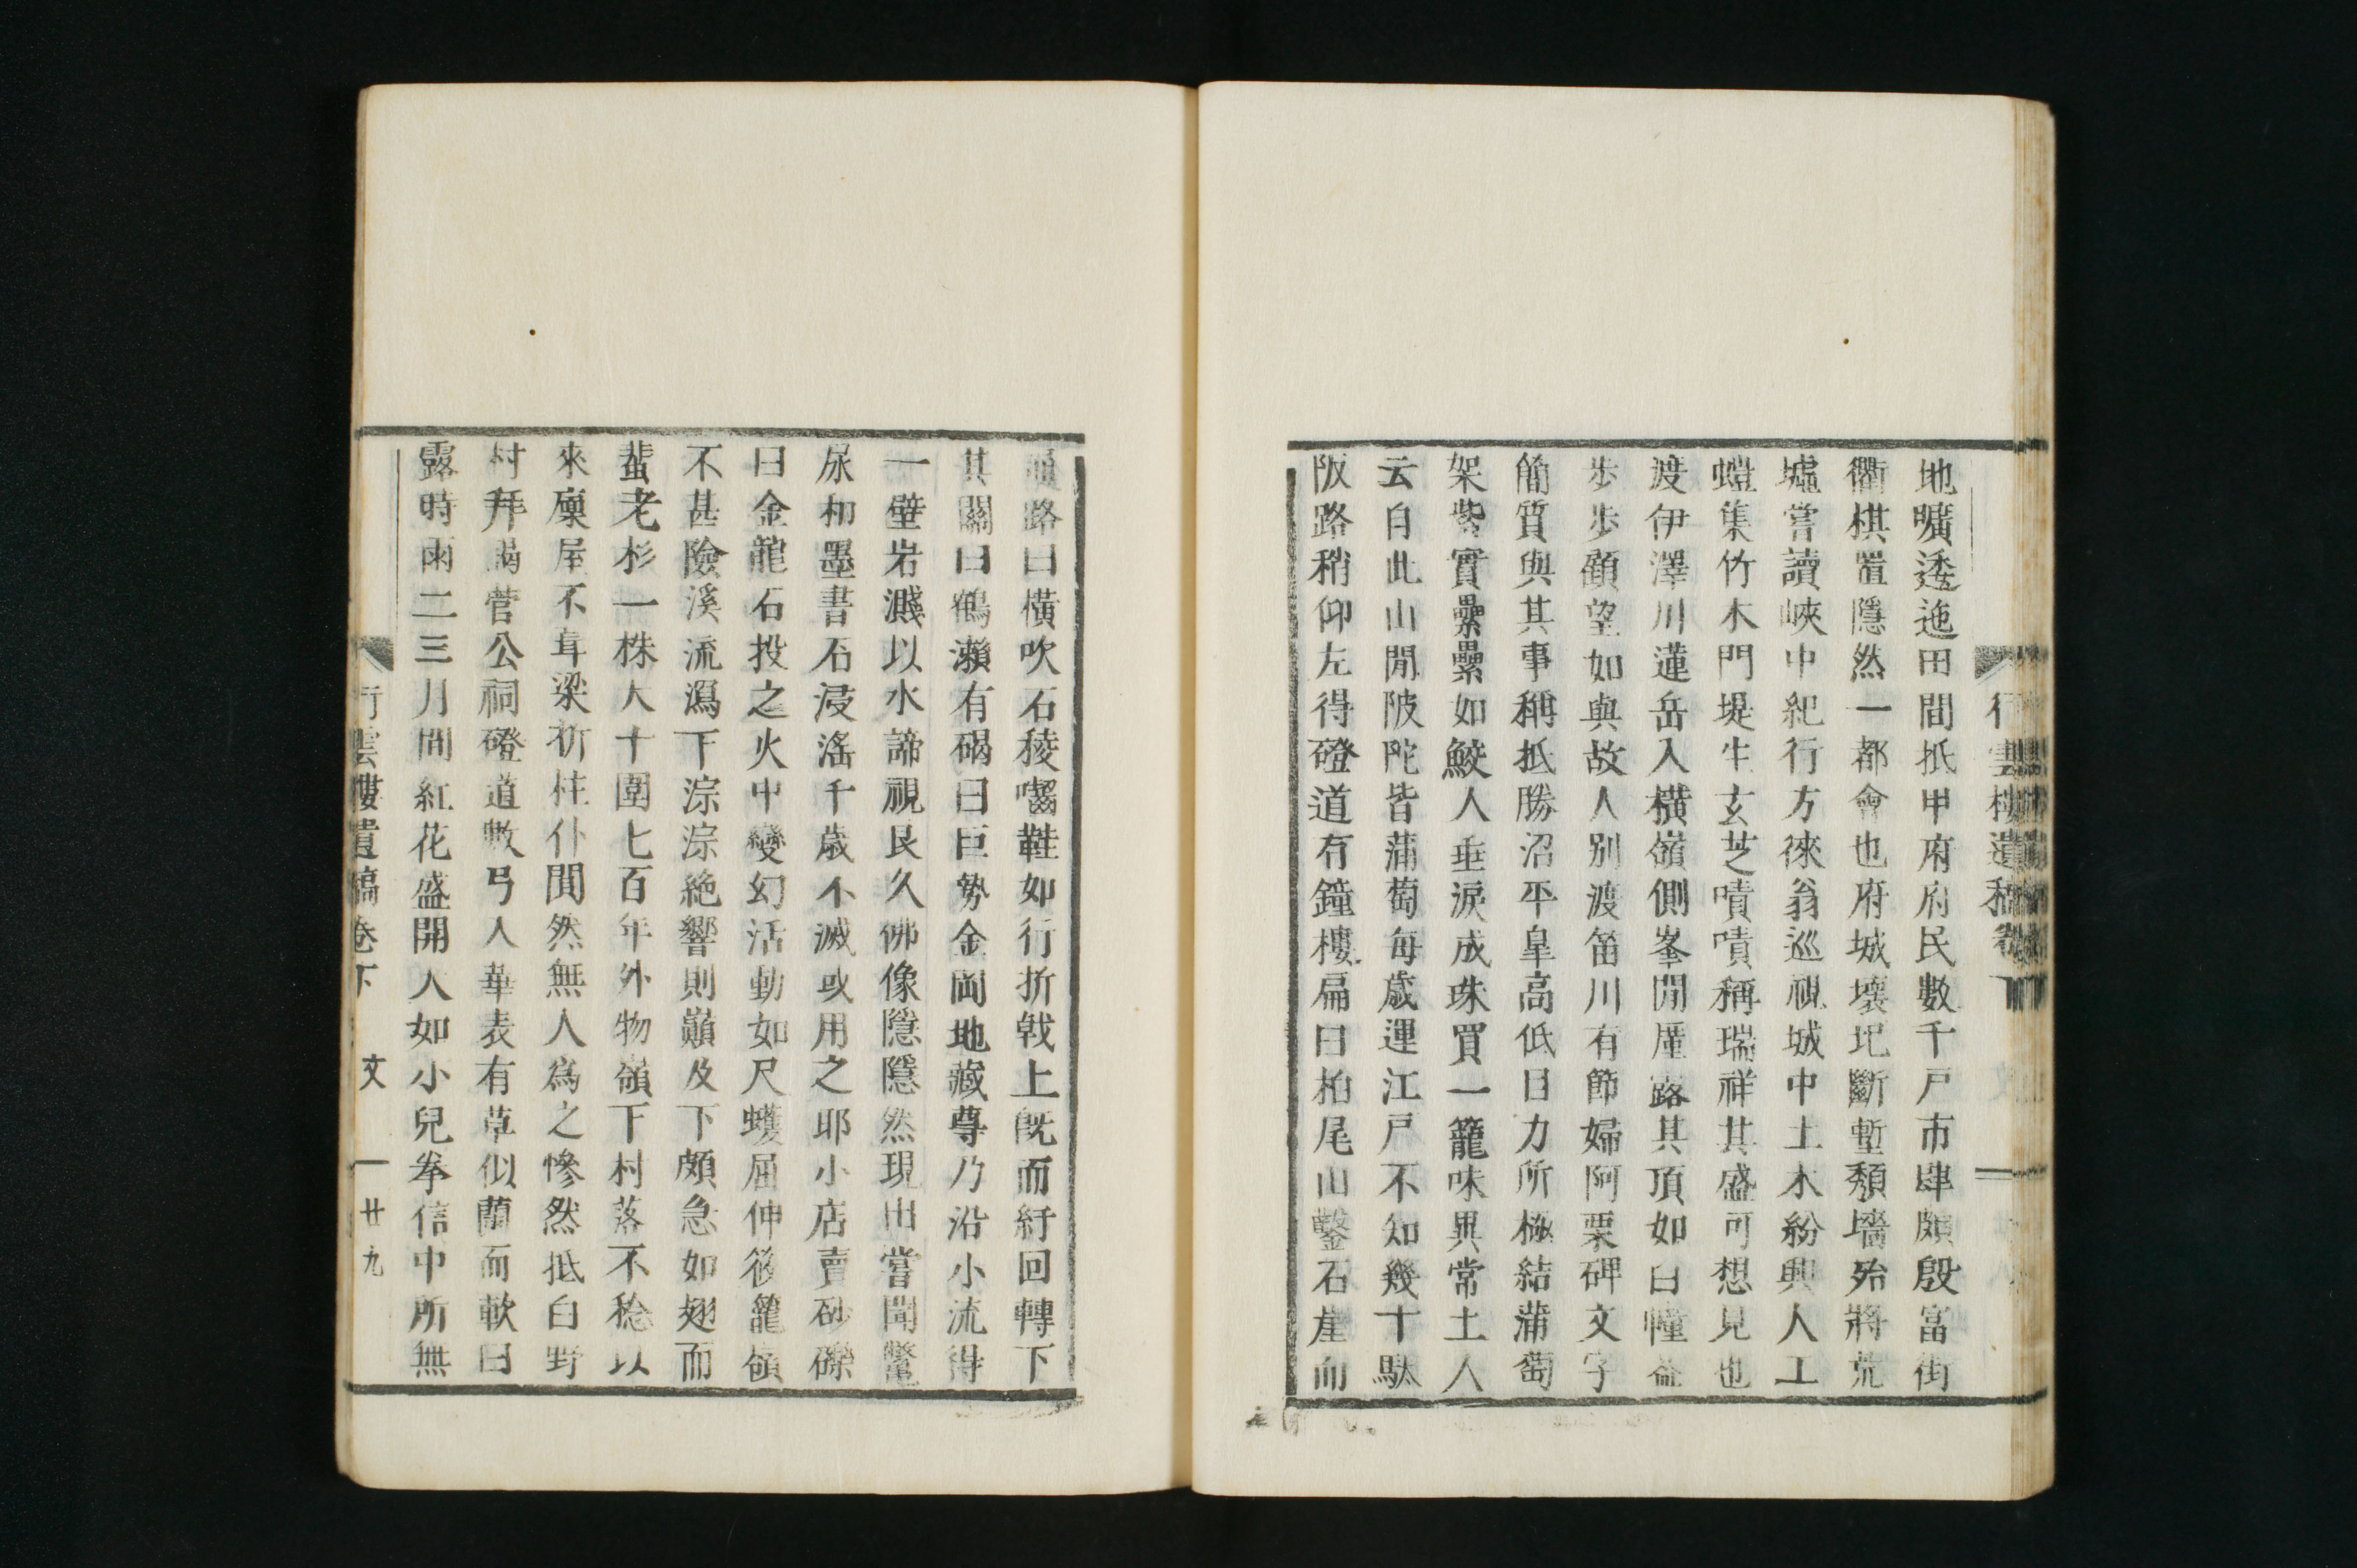 地曠逶迤田間抵甲府府民數千戸市肆頗殷富街
衢棋置隱然一都會也府城壞圯斷塹頽墻殆將荒
墟嘗讀峽中紀行方徠翁巡視城中土木紛興人工
螘集竹木門堤生玄芝嘖嘖稱瑞祥其盛可想見也
渡伊澤川蓮岳入橫嶺側峯閒厓露其頂如白幢葢
歩歩顧望如與故人別渡笛川有節婦阿栗碑文字
簡質與其事稱抵勝沼平皐高低目力所極結蒲萄
架紫實纍纍如鮫人垂淚成珠買一籠味異常土人
云自此山閒陂陀皆蒲萄每歳運江戸不知幾十駄
阪路稍仰左得磴道有鐘樓扁曰柏尾山鑿石崖而
通路曰橫吹石稜囓鞋如行折戟上旣而紆回轉下
其關曰鶴瀨有碣曰巨勢金岡地藏尊乃沿小流得
一壁岩濺以水諦視良久佛像隱隱然現出嘗聞鼈
尿和墨書石浸滛千歳不滅或用之耶小店賣砂礫
曰金龍石投之火中變幻活動如尺蠖屈伸後籠嶺
不甚險溪流瀉下淙淙絶響則巓及下頗急如翅而
蜚老杉一株大十圍七百年外物嶺下村落不稔以
來廩屋不葺梁折柱仆闃然無人爲之慘然抵白野
村拜謁菅公祠磴道數弓入華表有草似蘭而軟曰
露時雨二三月間紅花盛開大如小兒拳信中所無
行雲樓遺稿卷下　文　廿九